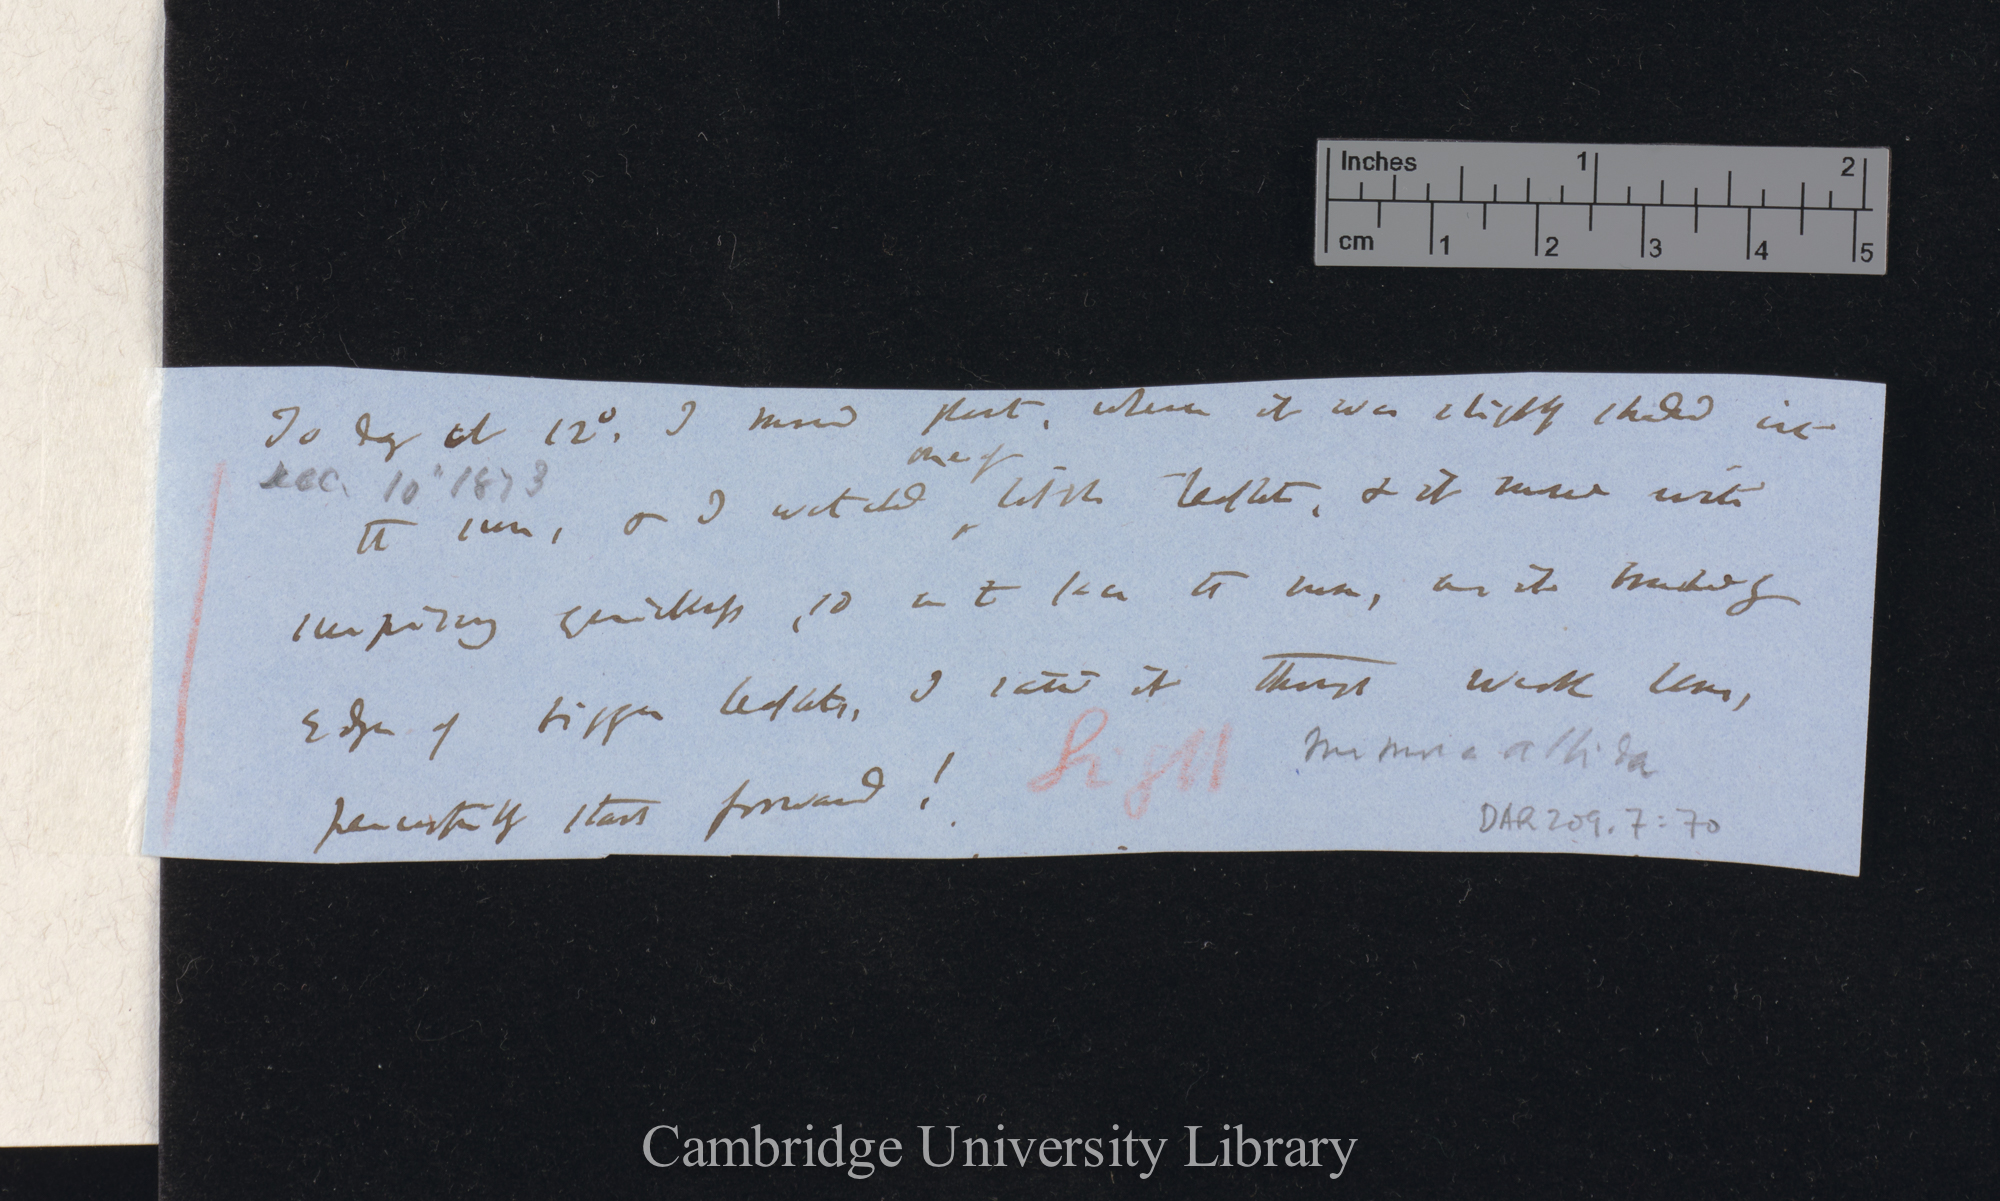 Inches 1 2
cm 1 2 3 4 5
To day at 12°. I moved plant, where it was slightly shaded into
Dec. 10" 1873
one of
the sun, & I watched little leaflets, & it moved with
surprising quickness, so as to face the sun, as its
edges of bigger leaflets, I it through weak lens,
start forward!
Light
Mimosa albida
DAR 209.7:70
Cambridge University Library